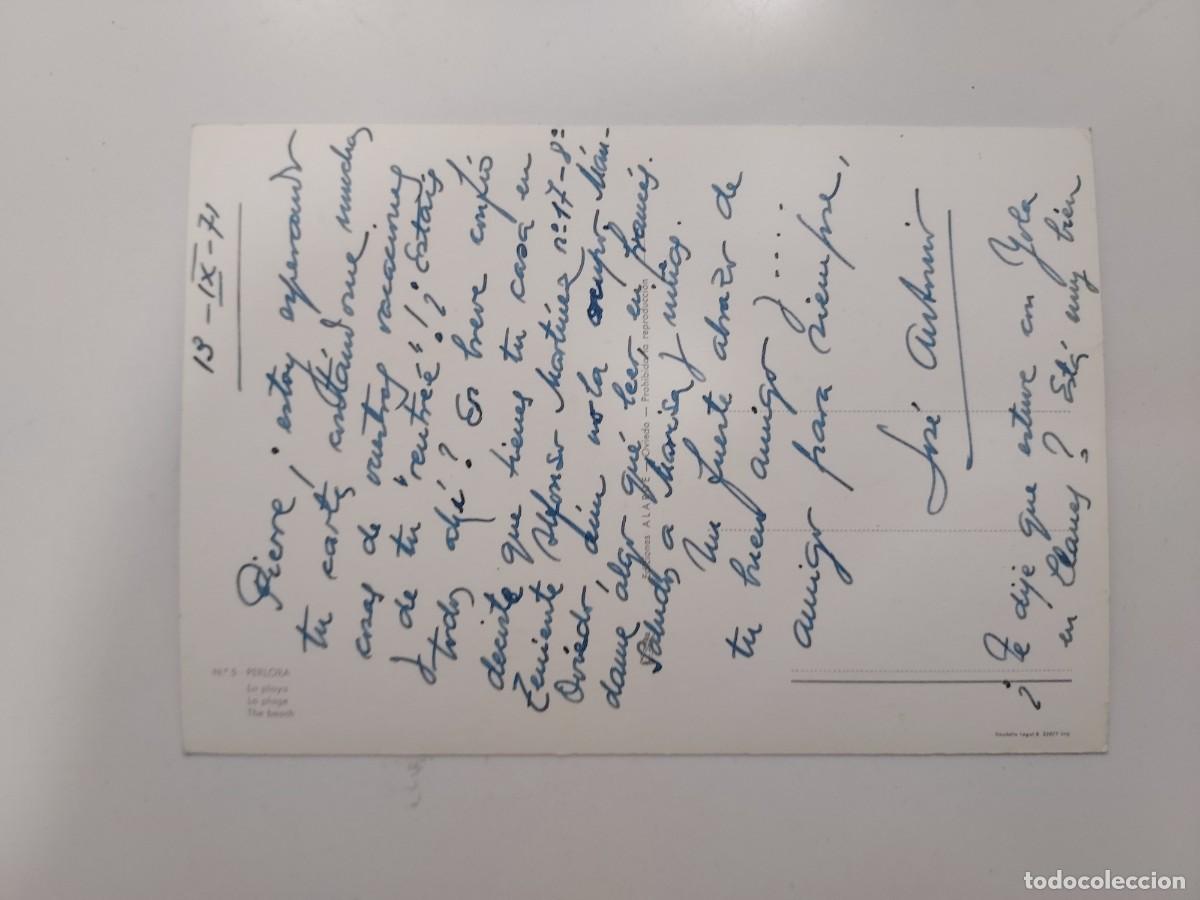 Nº 5 - PERLORA
La playa
La plage
The beach
13 - IX - 71
Pierre, estoy esperando
tu carta contándome muchas
cosas de vuestras vacaciones
y de tu "rentreé"! ¿Estáis
todos ahí? Es breve
decirte que tienes tu casa en
Teniente Alfonso Martínez nº 17 - 8º
Oviedo aún no la ocupo Mán-
dame algo qué leer en francés.
Saludos a Marisa y niños.
Un fuerte abrazo de
tu buen amigo y ....
amigo para siempre,
José Antonio
¿Te dije que estuve con Yola
en Llanes? Está muy bien
Ediciones ALARDE — Oviedo — Prohibida la reproducción
todocoleccion